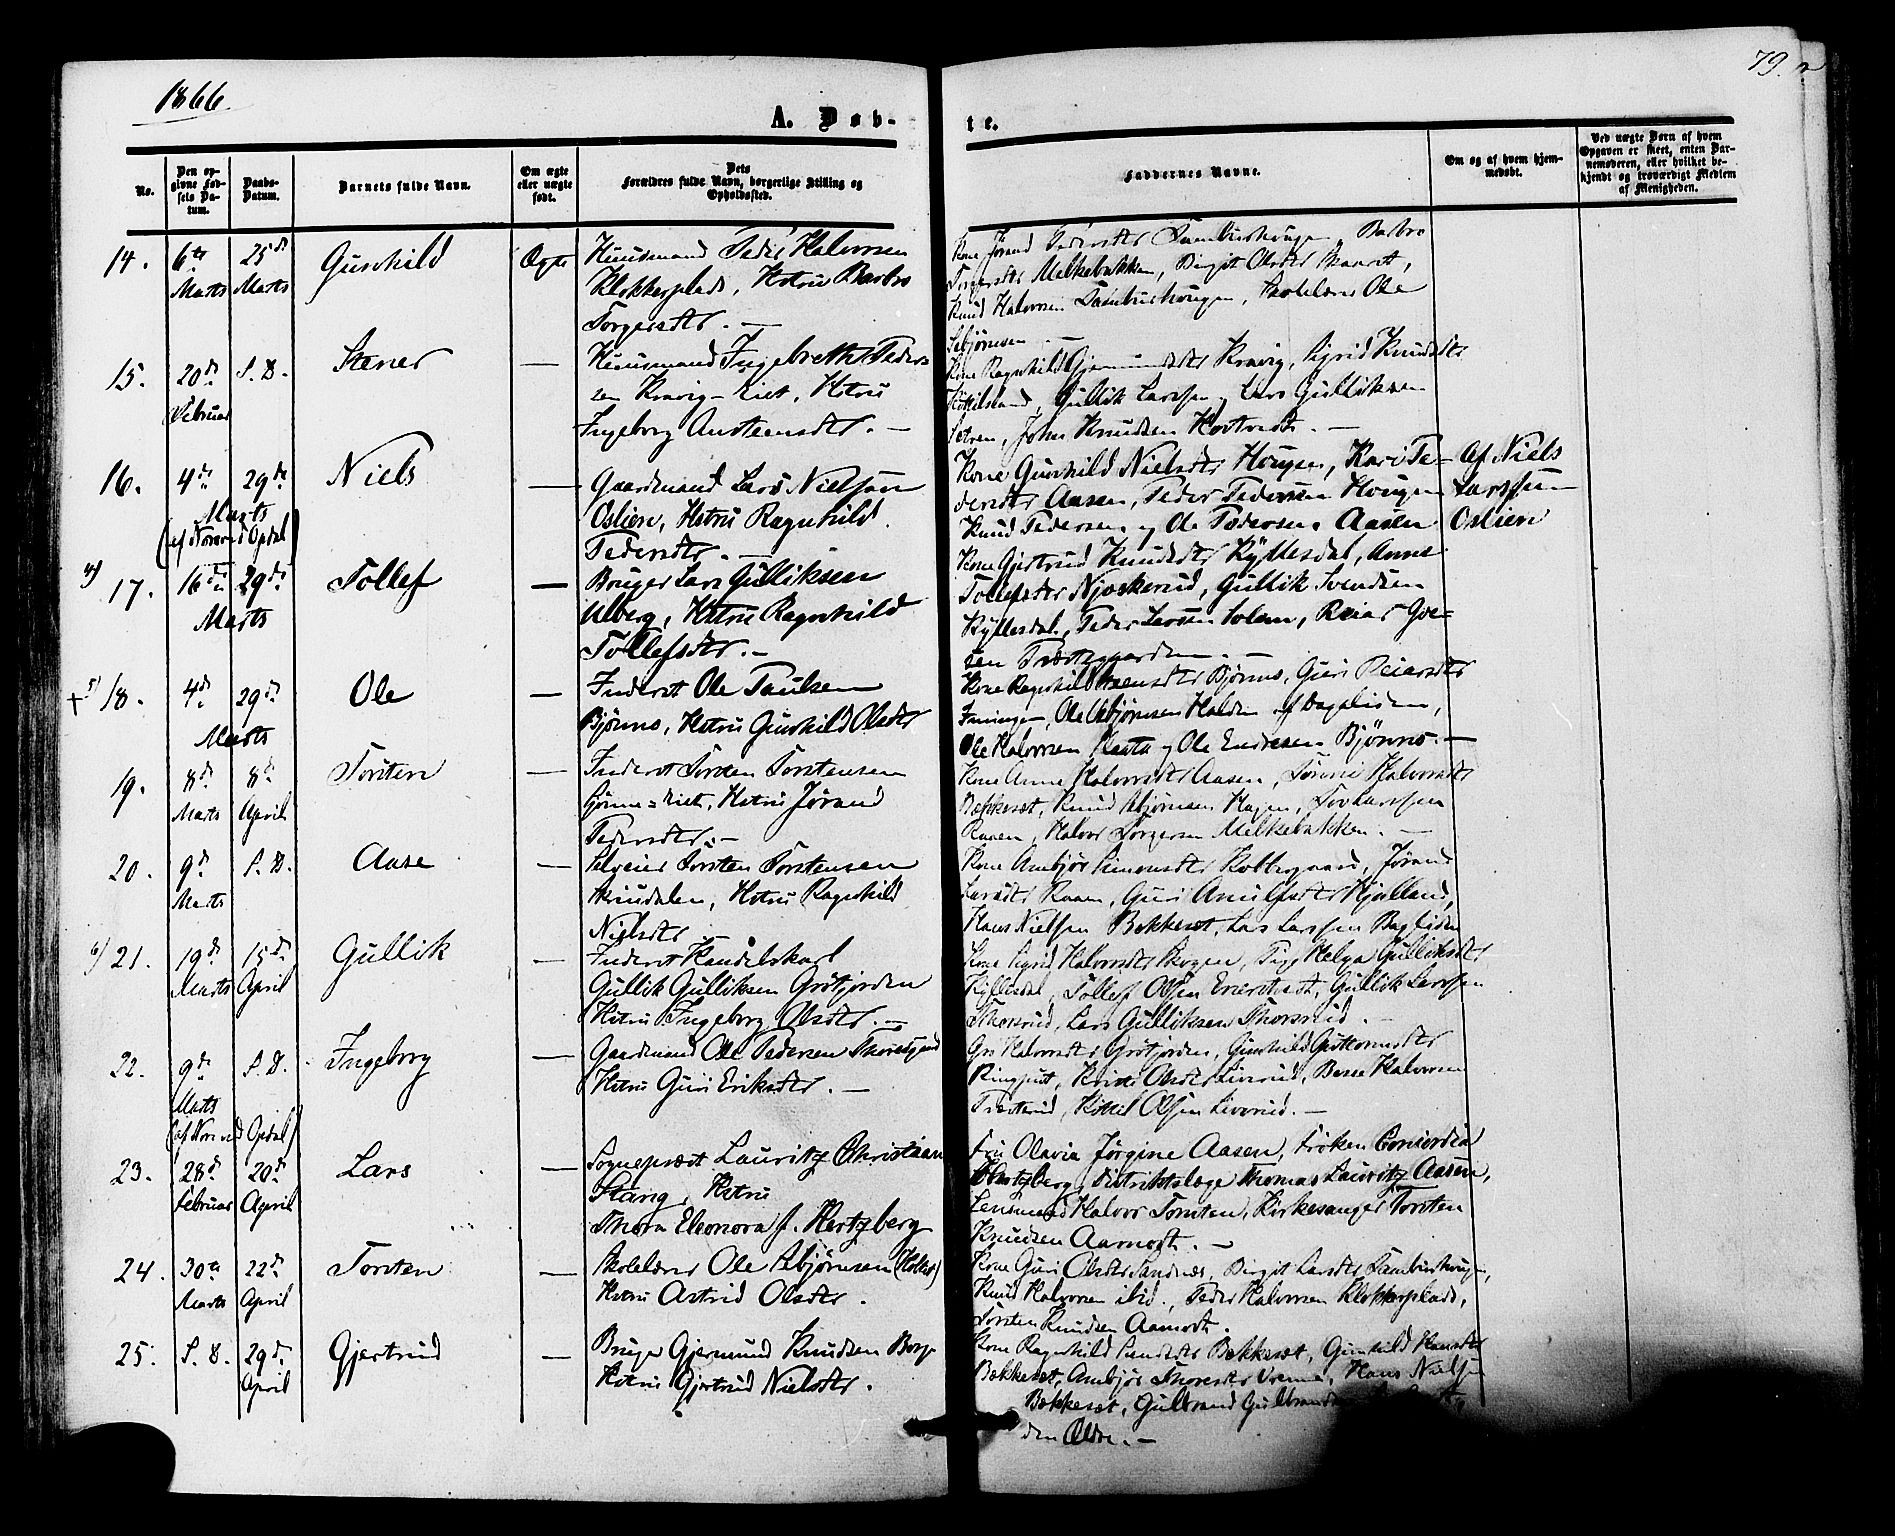 1866.
79.
A. Døb-
te.
No.
Den op-
givne Fød-
sels Da-
tum.
Daabs-
Datum.
Barnets fulde Navn.
Om ægte
eller uægte
født.
Dets
Forældres fulde Navn, borgerlige Stilling og
Opholdssted.
Faddernes Navne.
Om og af hvem hjem-
medøbt.
Ved uægte Børn af hvem
Opgaven er skeet, enten Bar-
nemoderen, eller hvilket be-
kjendt og troværdigt Medlem
af Menigheden.
14. 6te Marts 25de Marts Gunhild Ægte
Huusmand Peder Halvorsen
Klokkerplads, Hstru Barbro
Torgersdtr. —
Kone Jørand Pedersdtr Barbro
Torgersdtr Melkebakken, Birgit Olsdtr
Knud Halvorsen Skolelærer Ole
Asbjørnsen —
15. 20de Februar S. D. Stener —
Huusmand Ingebreth Peder-
sen Kravig-Eiet, Hstru
Ingeborg Austeensdtr. —
Kone Ragnhild Gjermundsdtr Kravig, Sigrid Knudsdtr
Gullik Larssen, Lars Gulliksen
John Knudsen —
16. 4de 29de Marts Niels —
(af Nore ved Opdal)
Gaardmand Lars Nielsen
Oslien, Hstru Ragnhild
Pedersdtr. —
Kone Gunhild Nielsdtr Hougen, Kari Pe-
dersdtr Aasen, Peder Pedersen Hougen
Knud Pedersen og Ole Pedersen Aasen
Af Niels
Larssen
Oslien
4) 17. 16de 29de Marts Tollef —
Bruger Lars Gulliksen
Ulberg, Hstru Ragnhild
Tollefsdtr. —
Kone Gjertrud Knudsdtr Kyllesdal, Anne
Tollefsdtr Njøskerud, Gullik Svendsen
Kyllesdal, Peder Larssen Solem, Reiar Goe-
sen Prestegaarden. —
+ 5) 18. 4de 29de Marts Ole —
Inderst Ole Paulsen
Bjønno, Hstru Gunhild Olsdtr
Kone Ragnhild Bjønno, Guri Reiarsdtr
Ole Asbjørnsen af Dagalien,
Ole Halvorsen og Ole Endresen Bjønno. —
19. 8de Marts 8de April Torsten —
Inderst Torsten Torstensen
Eiet, Hstru Jørand
Pedersdtr. —
Kone Anne Halvorsdtr Aasen, Tønne Halvorsdtr
Bekkeset, Knud Asbjørnsen Hagen, Tov Larssen
Raaen, Halvor Torgersen Melkebakken. —
20. 9de Marts S. D. Aase —
Selveier Torsten Torstensen
Skrudalen, Hstru Ragnhild
Nielsdtr —
Kone Ambjør Simonsdtr Jørand
Larsdtr Raaen, Guri Hjalland,
Hans Nielsen Bekkeset, Lars Larssen
6) 21. 19de Marts 15de April Gullik —
Inderst Handelskarl
Gullik Gulliksen Grøtjorden
Hstru Ingeborg Olsdtr. —
Kone Sigrid Halvorsdtr Skogen, Pige Helga Gulliksdtr
Kyllesdal, Tollef Olsen Gullik Larssen
Thorsrud, Lars Gulliksen Thorsrud. —
22. 9de Marts S. D. Ingeborg —
(af Nore ved Opdal)
Gaardmand Ole Pedersen
Hstru Guri Eriksdtr. —
Gro Halvorsdtr Grøtjorden, Gunhild Guttormsdtr
Kristi Olsdtr Liverud, Halvorsen
Kittil Olsen Liverud. —
23. 28de Februar 20de April Lars —
Sognepræst Lauritz Christian
Stang, Hstru
Thora Eleonora f. Hertzberg
Fru Olavia Jørgine Aasen, Frøken Concordia
Hertzberg, Distriktslæge Thomas Lauritz Aasen,
Lensmand Halvor Torsten, Kirkesanger Torsten
Knudsen Aamodt. —
24. 30te Marts 22de April Torsten —
Skolelærer Ole Asbjørnsen
Hstru Astrid Olsdtr.
Kone Guri Olsdtr Sandnæs, Birgit Larsdtr
Knud Halvorsen ibid., Peder Halvorsen Klokkerplads,
Torsten Knudsen Aamodt.
25. S. D. 29de April Gjertrud —
Bruger Gjermund Knudsen Borge
Hstru Gjertrud Nielsdtr.
Kone Ragnhild Bekkeset, Gunhild Hansdtr
Bekkeset, Ambjør Thoresdtr Hans Nielsen
Bekkeset, Gulbrand
den Ældre. —